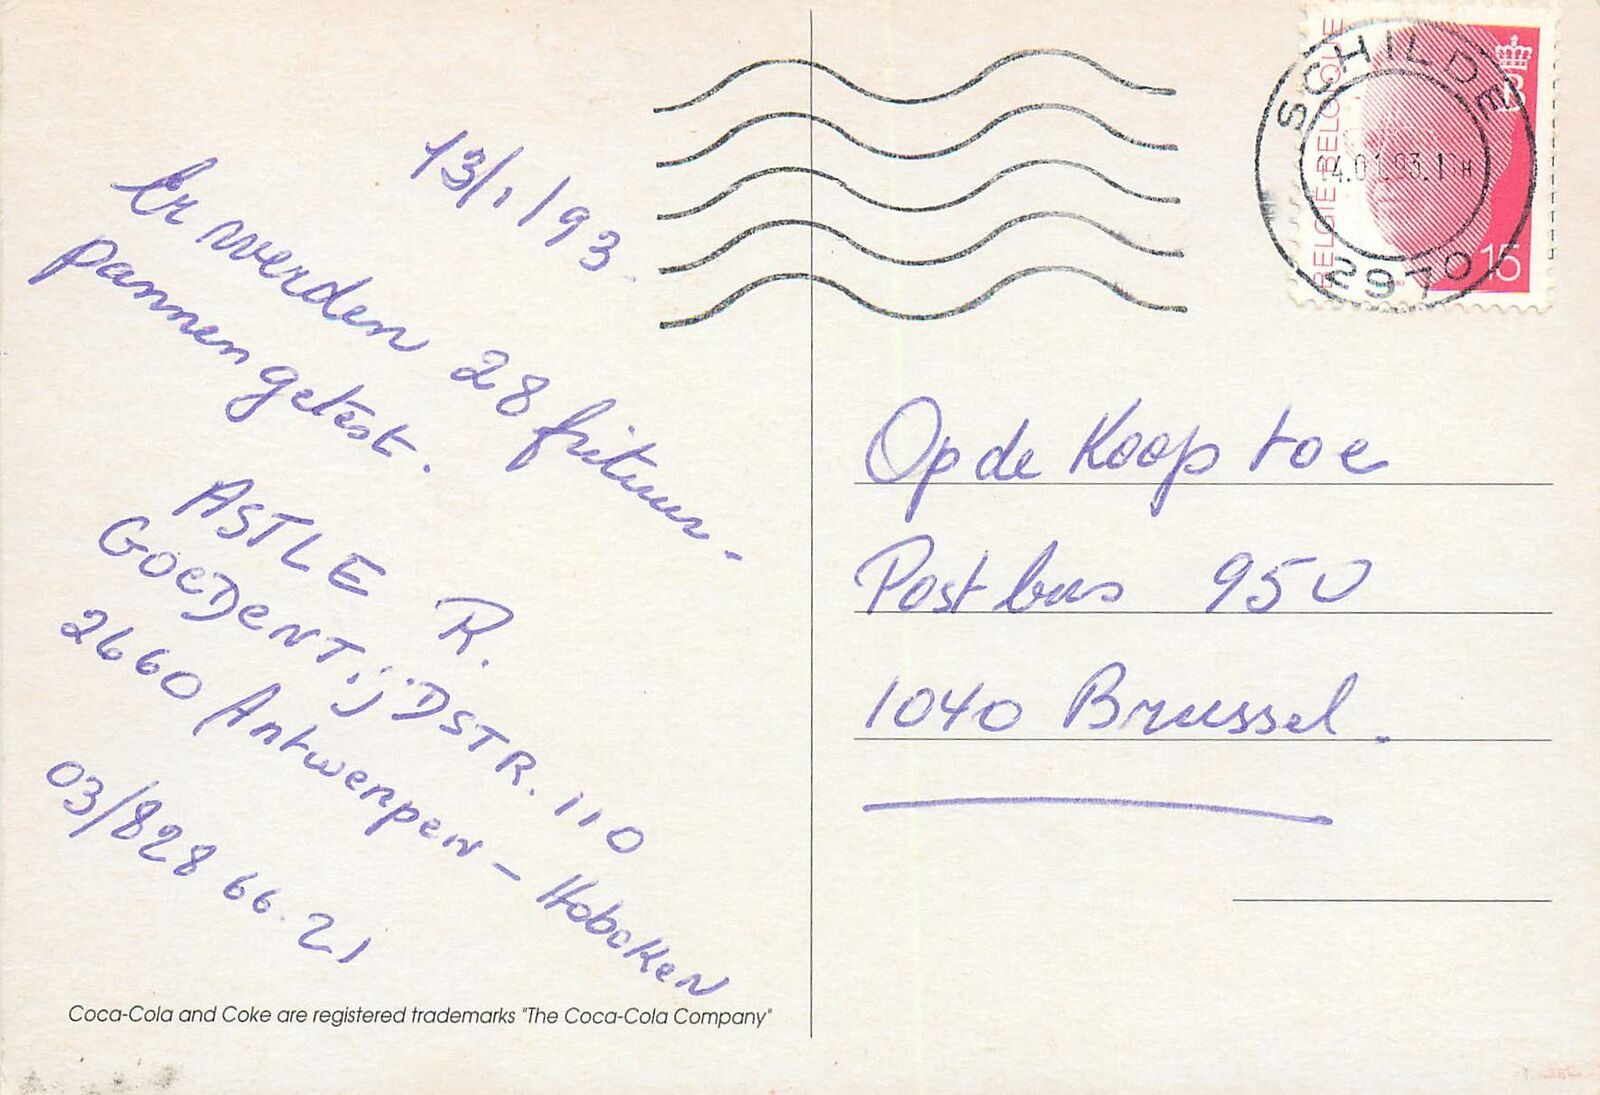 13/1/93.
Er werden 28 frituur-
pannen getest.
ASTLE R.
GOEDENTIJDSTR. 110
2660 Antwerpen - Hoboken
03/828 66.21
Coca-Cola and Coke are registered trademarks "The Coca-Cola Company"
BELGIË-BELGIQUE
B
15
SCHILDE
2970
Op de Koop toe
Postbus 950
1040 Brussel.